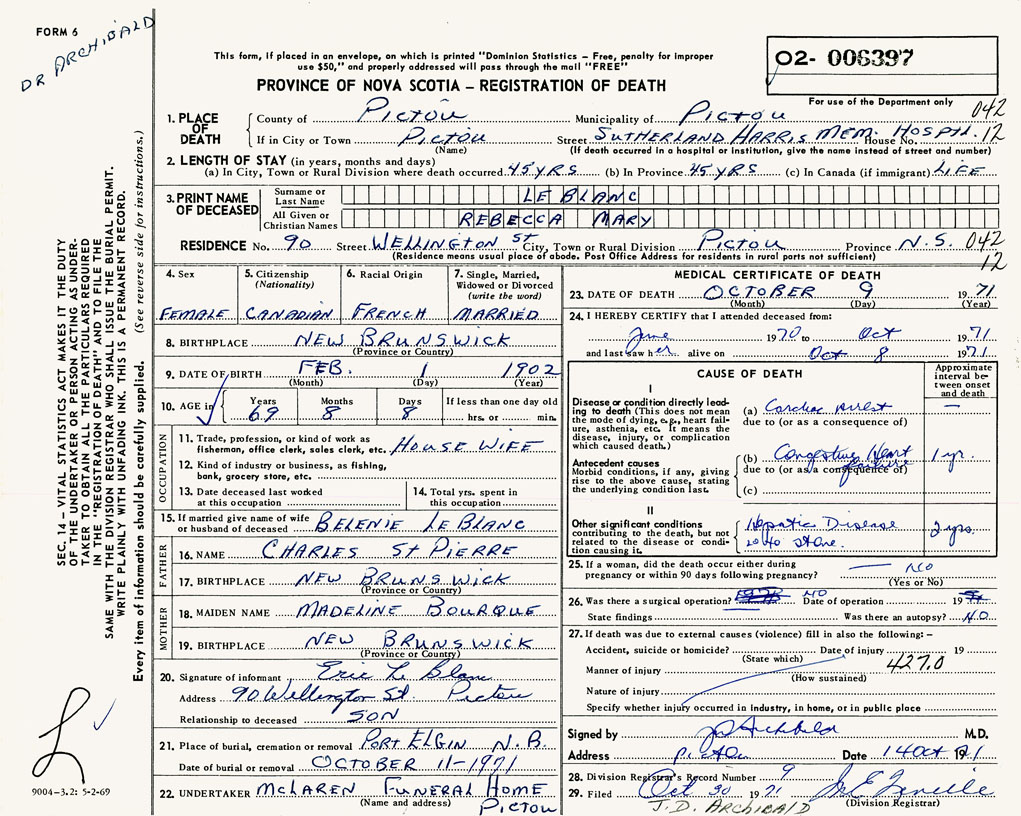 FORM 6
DR ARCHIBALD
This form, if placed in an envelope, on which is printed "Dominion Statistics – Free, penalty for improper
use $50," and properly addressed will pass through the mail "FREE"
PROVINCE OF NOVA SCOTIA – REGISTRATION OF DEATH
O2- 006397
For use of the Department only
042
12
1. PLACE OF DEATH
County of Pictou Municipality of Pictou
If in City or Town Pictou Street SUTHERLAND HARRIS MEM. HOSPTL. House No.
(Name) (If death occurred in a hospital or institution, give the name instead of street and number)
2. LENGTH OF STAY (in years, months and days)
(a) In City, Town or Rural Division where death occurred 45 YRS (b) In Province 45 YRS (c) In Canada (if immigrant) LIFE
3. PRINT NAME OF DECEASED
Surname or Last Name LE BLANC
All Given or Christian Names REBECCA MARY
RESIDENCE No. 90 Street WELLINGTON St City, Town or Rural Division Pictou Province N.S. 042
(Residence means usual place of abode. Post Office Address for residents in rural parts not sufficient) 12
4. Sex FEMALE
5. Citizenship (Nationality) CANADIAN
6. Racial Origin FRENCH
7. Single, Married, Widowed or Divorced (write the word) MARRIED
8. BIRTHPLACE NEW BRUNSWICK
(Province or Country)
9. DATE OF BIRTH FEB. 1 1902
(Month) (Day) (Year)
10. AGE in Years 69 Months 8 Days 8 If less than one day old hrs. or min.
OCCUPATION
11. Trade, profession, or kind of work as
fisherman, office clerk, sales clerk, etc. HOUSE WIFE
12. Kind of industry or business, as fishing,
bank, grocery store, etc.
13. Date deceased last worked at this occupation
14. Total yrs. spent in this occupation
15. If married give name of wife
or husband of deceased BELENIE LE BLANC
FATHER
16. NAME CHARLES St PIERRE
17. BIRTHPLACE NEW BRUNSWICK
(Province or Country)
MOTHER
18. MAIDEN NAME MADELINE BOURQUE
19. BIRTHPLACE NEW BRUNSWICK
(Province or Country)
20. Signature of informant Eric Le Blanc
Address 90 Wellington St Pictou
Relationship to deceased SON
21. Place of burial, cremation or removal PORT ELGIN N.B.
Date of burial or removal OCTOBER 11-1971
22. UNDERTAKER McLAREN FUNERAL HOME
(Name and address) PICTOU
MEDICAL CERTIFICATE OF DEATH
23. DATE OF DEATH OCTOBER 9 1971
(Month) (Day) (Year)
24. I HEREBY CERTIFY that I attended deceased from:
June 1970 to Oct 1971
and last saw her alive on Oct 8 1971
CAUSE OF DEATH
Approximate interval between onset and death
I
Disease or condition directly leading to death (This does not mean the mode of dying, e.g., heart failure, asthenia, etc. It means the disease, injury, or complication which caused death.)
(a) Cardiac arrest —
due to (or as a consequence of)
Antecedent causes
Morbid conditions, if any, giving rise to the above cause, stating the underlying condition last.
(b) Congestive Heart failure 1 yr.
due to (or as a consequence of)
(c)
II
Other significant conditions contributing to the death, but not related to the disease or condition causing it.
Hepatic Disease 2 yrs.
stone.
25. If a woman, did the death occur either during
pregnancy or within 90 days following pregnancy? NO
(Yes or No)
26. Was there a surgical operation? NO Date of operation 19
State findings Was there an autopsy? NO
27. If death was due to external causes (violence) fill in also the following: –
Accident, suicide or homicide? Date of injury 19
(State which)
Manner of injury 427.0
(How sustained)
Nature of injury
Specify whether injury occurred in industry, in home, or in public place
Signed by JD Archibald M.D.
Address Pictou Date 14 Oct 1971
28. Division Registrar's Record Number 9
29. Filed Oct 30 1971
(Division Registrar)
J.D. ARCHIBALD
SEC. 14 – VITAL STATISTICS ACT MAKES IT THE DUTY
OF THE UNDERTAKER OR PERSON ACTING AS UNDERTAKER
TO OBTAIN ALL THE PARTICULARS REQUIRED
IN THE "REGISTRATION OF DEATH" AND TO FILE THE
SAME WITH THE DIVISION REGISTRAR WHO SHALL ISSUE THE BURIAL PERMIT.
WRITE PLAINLY WITH UNFADING INK. THIS IS A PERMANENT RECORD.
Every item of information should be carefully supplied. (See reverse side for instructions.)
9004-3.2: 5-2-69